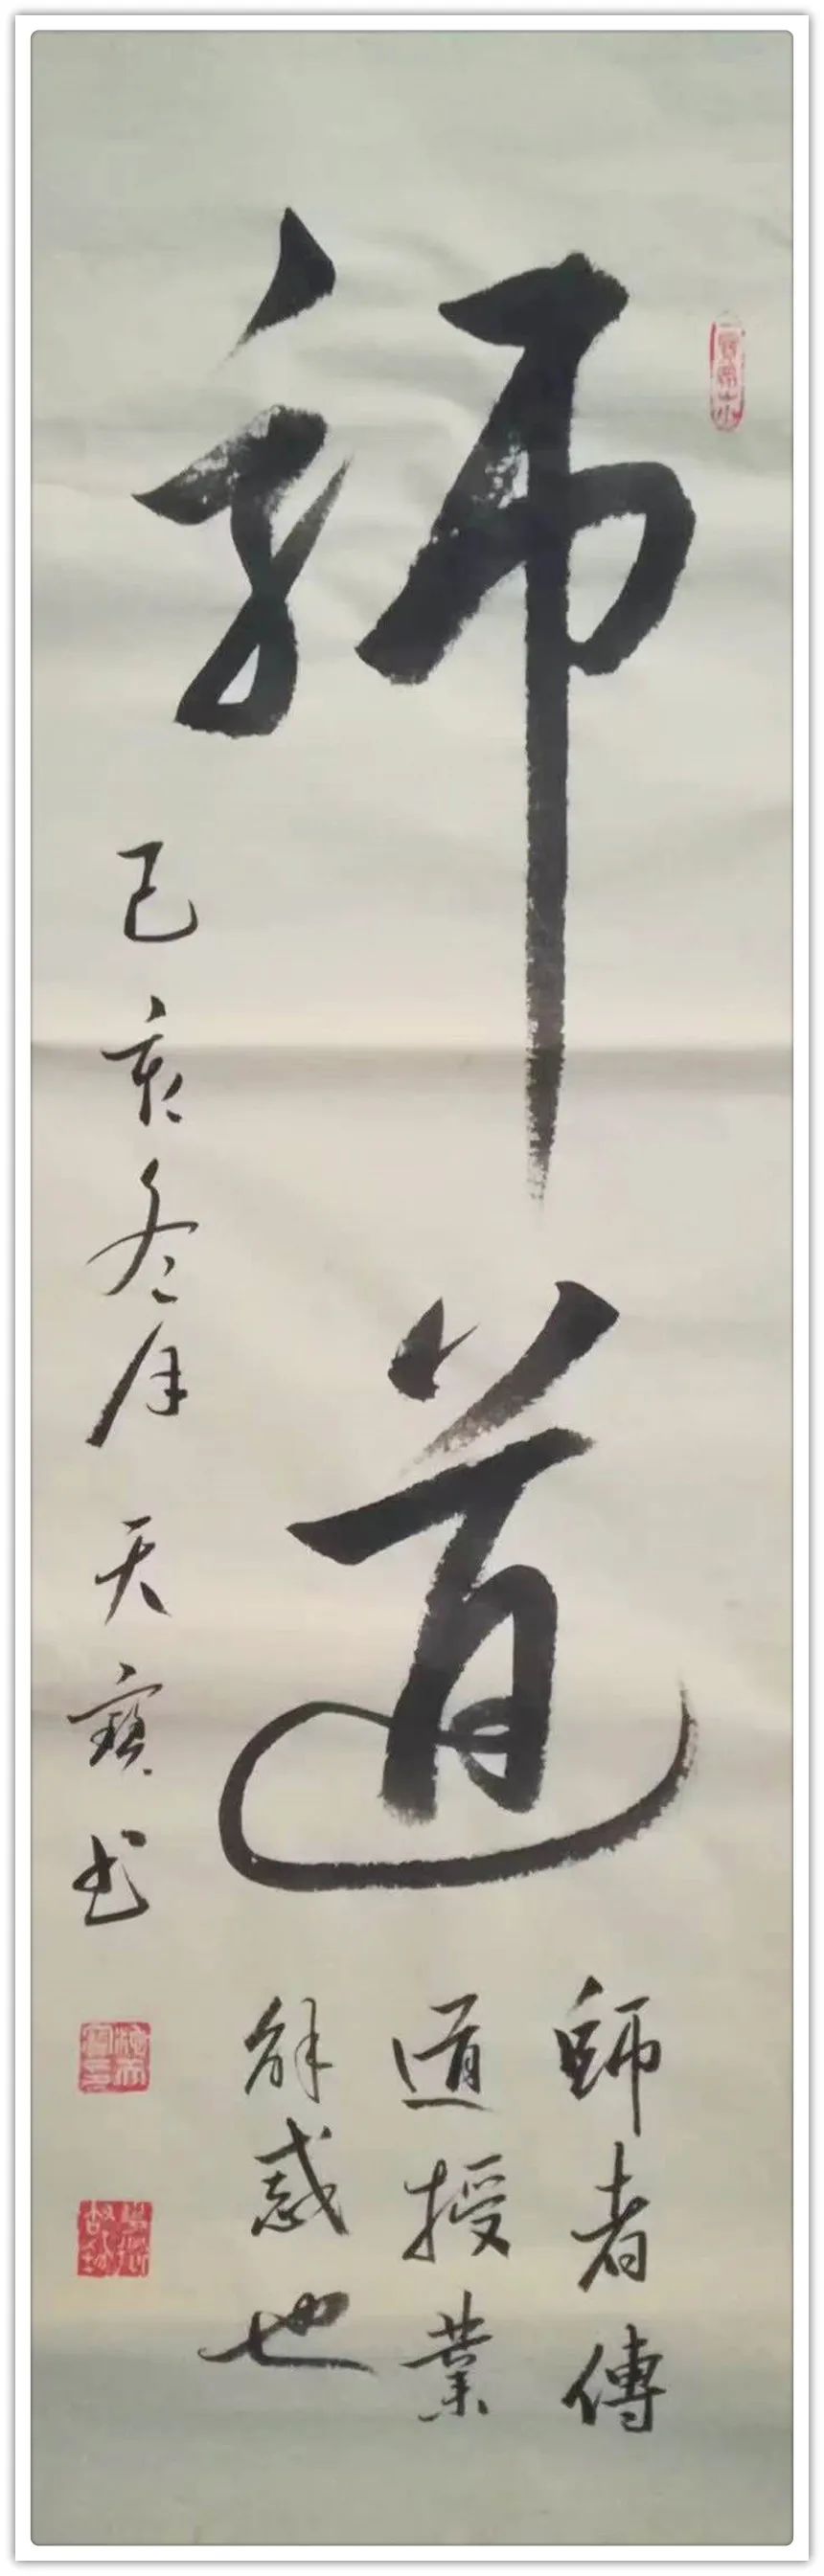 師道
師者傳
道授業
解惑也
己亥冬月天寶书